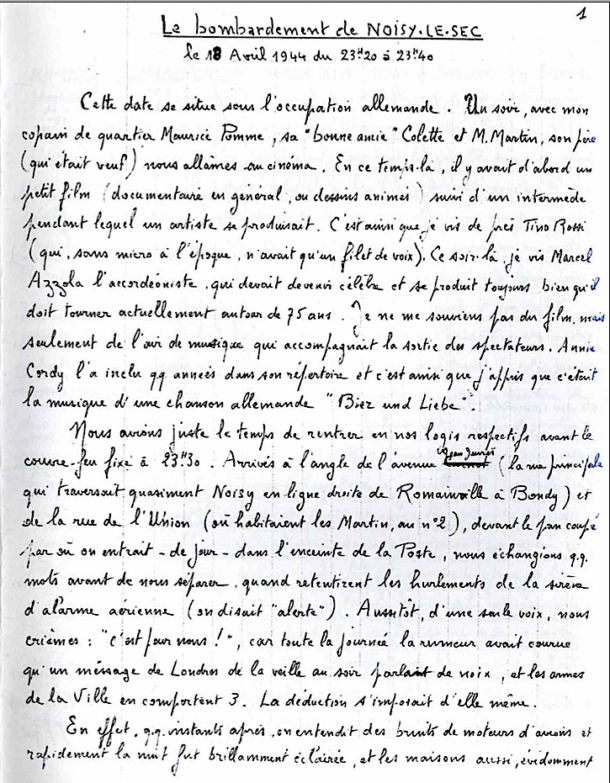 1
Le bombardement de NOISY-LE-SEC
le 18 Avril 1944 du 23H20 à 23H40
Cette date se situe sous l'occupation allemande. Un soir, avec mon
copain de quartier Maurice Pomme, sa "bonne amie" Colette et M. Martin, son père
(qui était veuf) nous allâmes au cinéma. En ce temps-là, il y avait d'abord un
petit film (documentaire en général, ou dessins animés) suivi d'un intermède
pendant lequel un artiste se produisait. C'est ainsi que je vis de près Tino Rossi
(qui, sans micro à l'époque, n'avait qu'un filet de voix). Ce soir-là, je vis Marcel
Azzola l'accordéoniste, qui devait devenir célèbre et se produit toujours bien qu'il
doit tourner actuellement autour de 75 ans. Je ne me souviens pas du film, mais
seulement de l'air de musique qui accompagnait la sortie des spectateurs. Annie
Cordy l'a inclu qq années dans son répertoire et c'est ainsi que j'appris que c'était
la musique d'une chanson allemande "Bier und Liebe".
Nous avions juste le temps de rentrer en nos logis respectifs avant le
couvre-feu fixé à 23H30. Arrivés à l'angle de l'avenue Jean Jaurès (la rue principale
qui traversait quasiment Noisy en ligne droite de Romainville à Bondy) et
de la rue de l'Union (où habitaient les Martin, au n°2), devant le pan coupé
par où on entrait - de jour - dans l'enceinte de la Poste, nous échangions q.q.
mots avant de nous séparer, quand retentirent les hurlements de la sirène
d'alarme aérienne (on disait "alerte"). Aussitôt, d'une seule voix, nous
criâmes : "c'est pour nous !", car toute la journée la rumeur avait courue
qu'un message de Londres de la veille au soir parlait de noix, et les armes
de la Ville en comportent 3. La déduction s'imposait d'elle même.
En effet, q.q. instants après, on entendit des bruits de moteurs d'avions et
rapidement la nuit fut brillamment éclairée, et les maisons aussi, évidemment